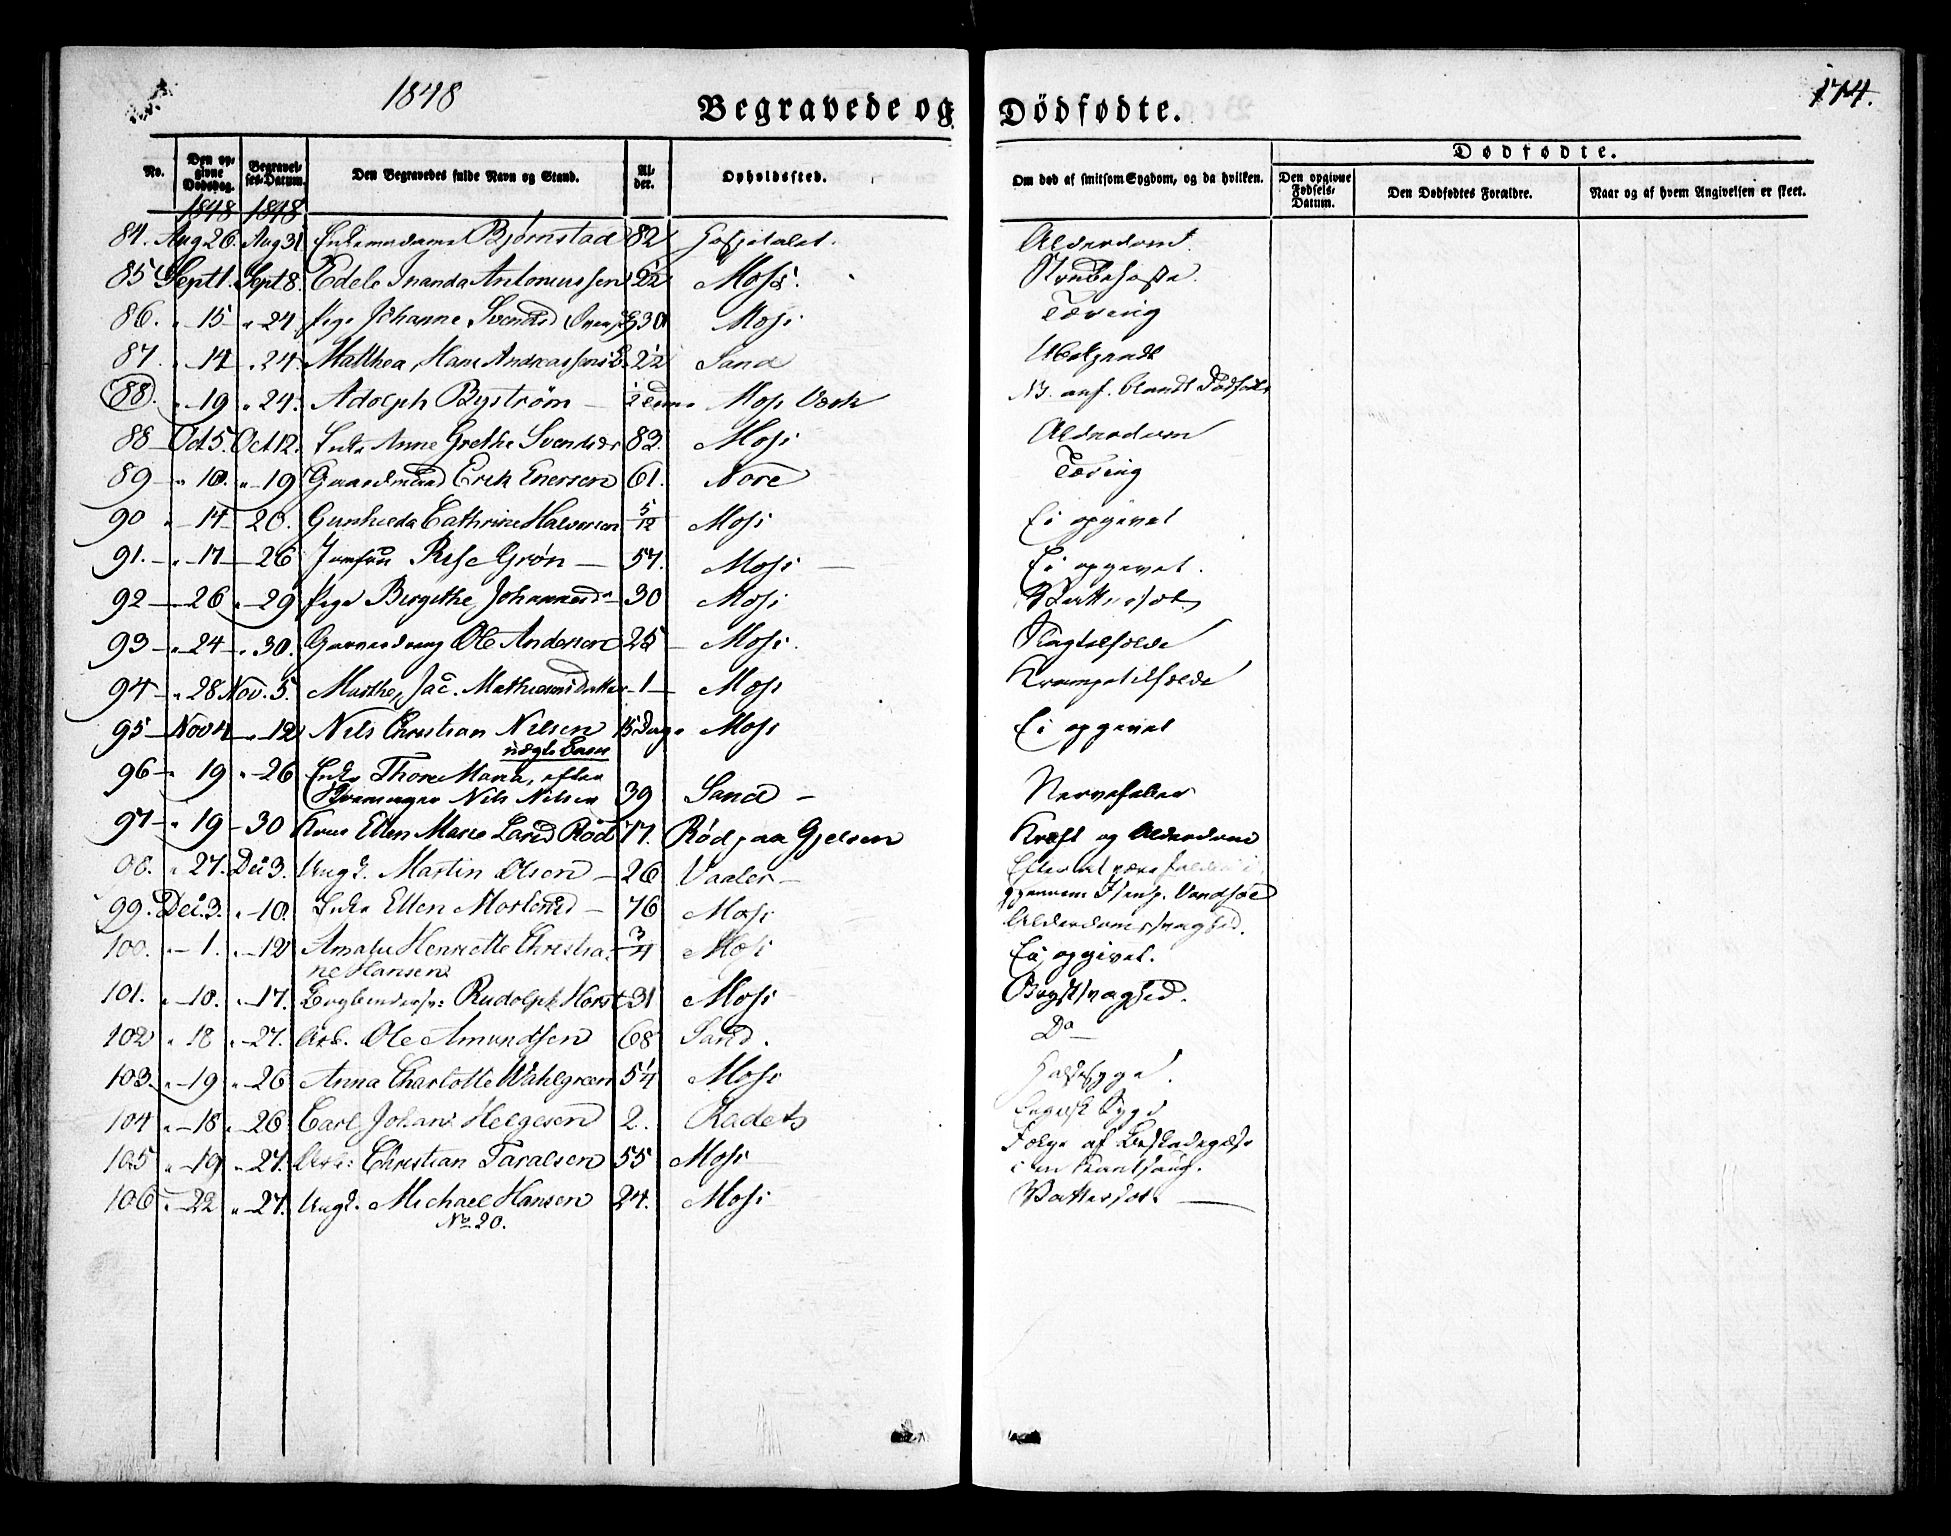 1848
174.
Begravede og Dödfødte.
No. Den opgivne Dødsdag. Begravelses-Datum. Den Begravedes fulde Navn og Stand. Alder. Opholdssted. Om død af smitsom Sygdom, og da hvilken. Dødfødte.
Den opgivne Fødsels-Datum. Den Dødfødtes Forældre. Naar og af hvem Angivelsen er skeet.
1848 1848
84. Aug 26. Aug 31 Enkemadame Bjørnstad 82 Hospitalet. Alderdom.
85 Sept 1. Sept 8. Edele Inanda Antoniussen 2 1/2 Moss. Strubehoste.
86. " 15 " 24 Pige Johanne Svendsd 30 Moss Tæring
87. " 14 " 24. Malthea Andreassen 2 1/2 Sand Ubekjendt
88. " 19 " 24. Adolph Byström — Moss Værk NB. anf. blandt Dødfødte
88 Oct 5. Oct 12. Enke Anne Grethe Svendsdr 83. Moss Alderdom
89 " 10. " 19 Gaardmand Erik Enersen 61. Nore Tæring
90 " 14 20. Gunhilda Cathrine Halvorsen 5/12 Moss Ei opgivet
91. " 17 26 Jomfru Rise Grøn — 57. Moss — Ei opgivet.
92 26 " 29 Pige Bergithe Johannesdr 30 Moss
93 " 24 " 30. Ole Andersen 25 Moss. Slagtilfælde
94 " 28 Nov. 5. Marthe Jac. Mathiasdatter 1 Moss Krampetilfælde
95 Nov 4 " 12 Nils Christian Nilsen 15 Dage Moss Ei opgivet
uægte Barn
96 " 19 " 26 Enke Thone Maria, efter
Nils Nilsen 39 Sand — Nervefeber
97 " 19 30 Kone Ellen Marie Larsd Rød 77. Rød paa Gjeløen Kræft og Alderdom
98. " 27. Dec 3. Ungk. Martin Olsen — 26 Vaaler — Efter at være falden i
gjennem Isen p. Vandsøe
99. Dec. 3. " 10. Enke Ellen — 76 Moss Alderdomssvaghed.
100. " 1. " 12 Amalie Henriette Christia- 3/4 Moss Ei opgivet.
ne Hansen
101. " 10. " 17. Rudolph Horst 31 Moss Brystsvaghed.
102 " 18 " 27. Arb. Ole Amundsen 68 Sand. Do
103 " 19 " 26 Anna Charlotte Wahlgreen 5 1/4 Moss Halssyge.
104 " 18 " 26 Carl Johan Helgesen 2. Kadets Engelsk Syge
105 " 19 " 27. Arb: Christian Taralsen 55 Moss Følge af Beskadigelse
106 " 22 " 27. Ungk. Michael Hansen 24. Moss Vattersot.
No 20.